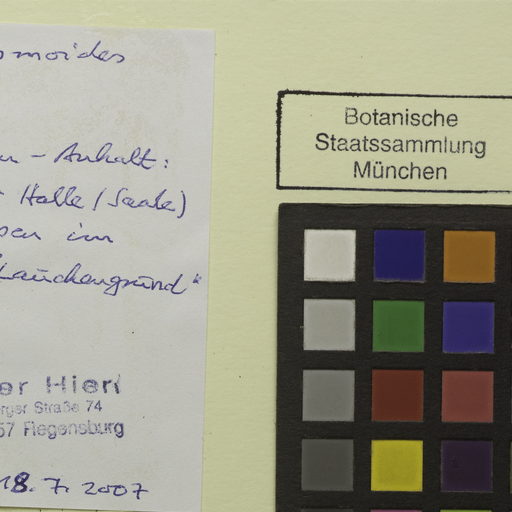 smoides
- Anhalt:
Halle (Saale)
im
Lauchengrund"
er Hierl
rger Straße 74
57 Regensburg
18. 7. 2007
Botanische
Staatssammlung
München